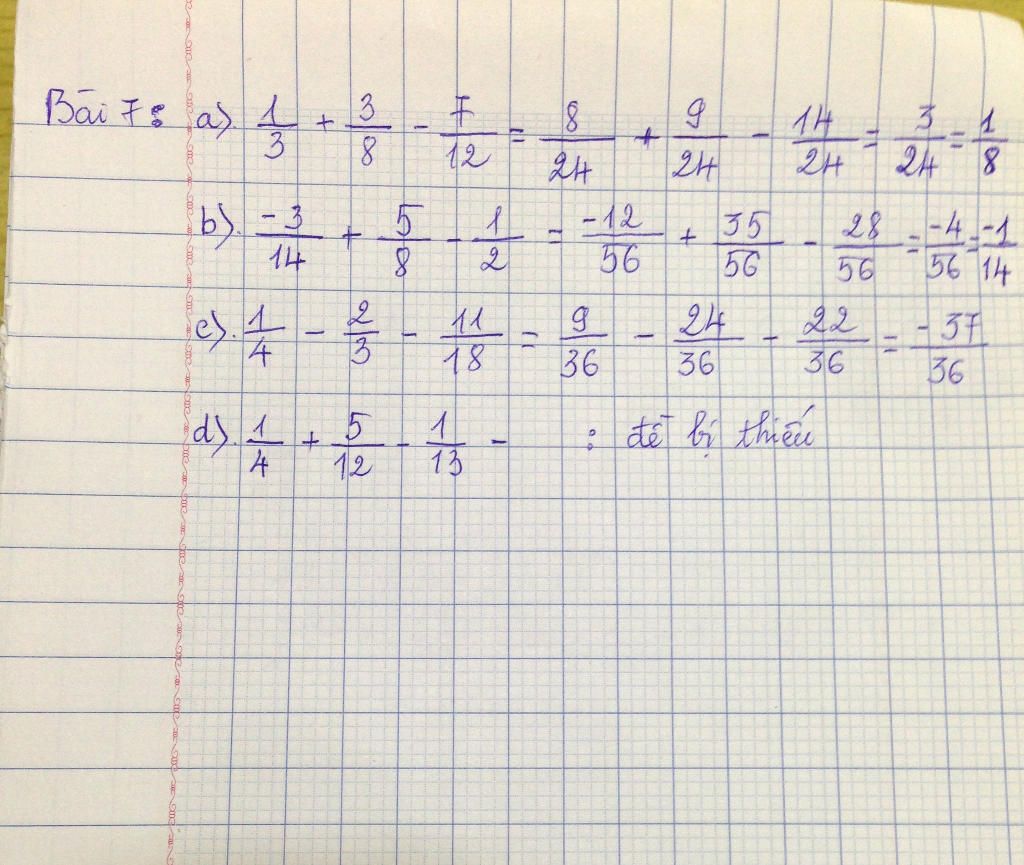 Bài 7: a). 1/3 + 3/8 - 7/12 = 8/24 + 9/24 - 14/24 = 3/24 = 1/8
b). -3/14 + 5/8 - 1/2 = -12/56 + 35/56 - 28/56 = -4/56 = -1/14
c). 1/4 - 2/3 - 11/18 = 9/36 - 24/36 - 22/36 = -37/36
d). 1/4 + 5/12 - 1/13 - : đề bị thiếu